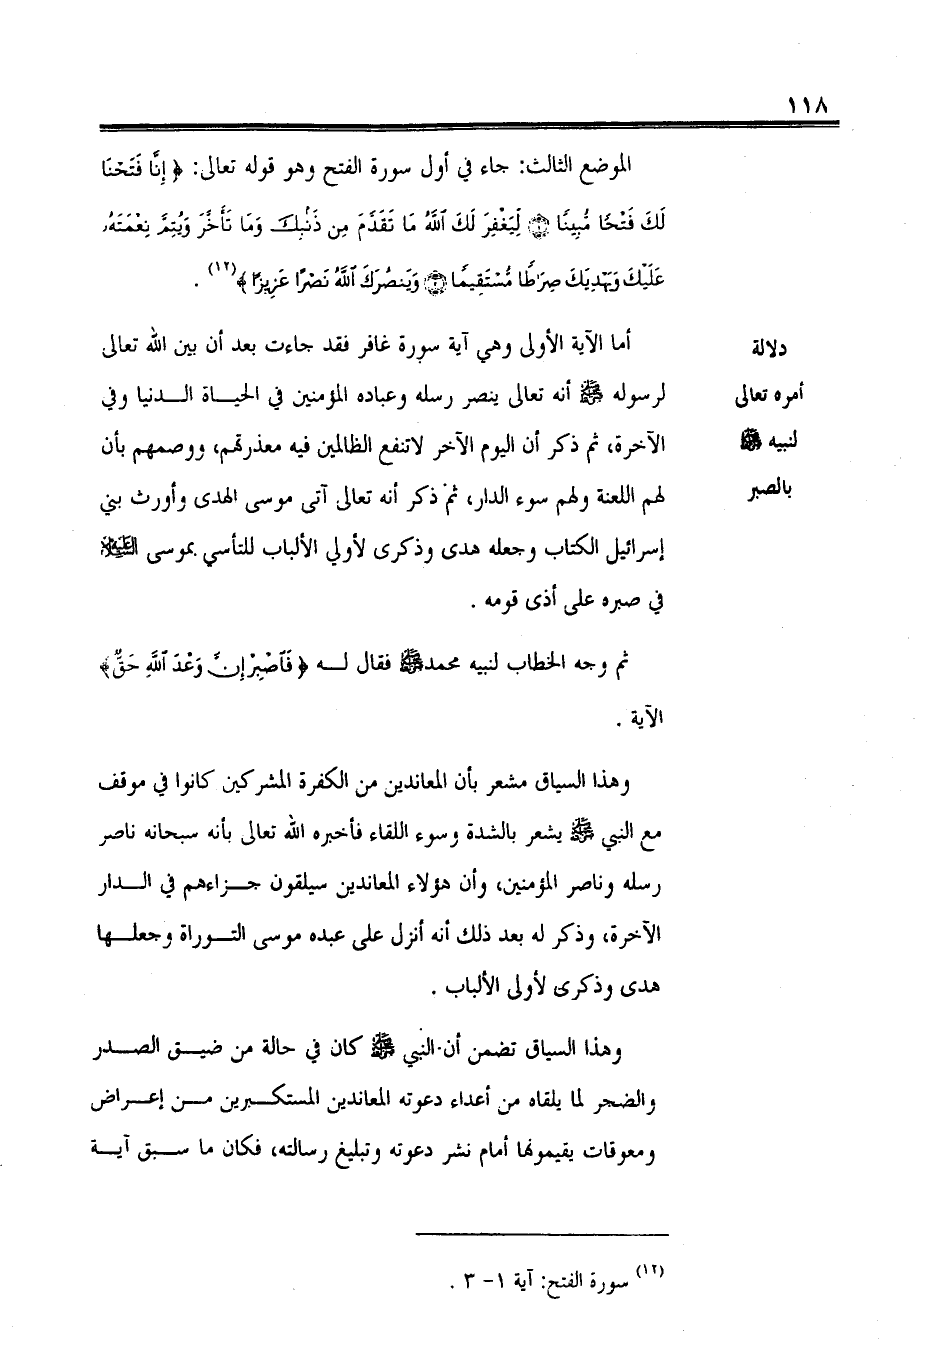 ١١٨
الموضع الثالث: جاء في أول سورة الفتح وهو قوله تعالى: ﴿ إِنَّا فَتَحْنَا
لَكَ فَتْحًا مُّبِينًا ۝١ لِّيَغْفِرَ لَكَ ٱللَّهُ مَا تَقَدَّمَ مِن ذَنۢبِكَ وَمَا تَأَخَّرَ وَيُتِمَّ نِعْمَتَهُۥ
عَلَيْكَ وَيَهْدِيَكَ صِرَٰطًا مُّسْتَقِيمًا ۝٢ وَيَنصُرَكَ ٱللَّهُ نَصْرًا عَزِيزًا ﴾(١٢) .
أما الآية الأولى وهي آية سورة غافر فقد جاءت بعد أن بين الله تعالى
لرسوله ﷺ أنه تعالى ينصر رسله وعباده المؤمنين في الحيـاة الـدنيا وفي
الآخرة، ثم ذكر أن اليوم الآخر لاتنفع الظالمين فيه معذرتهم، ووصمهم بأن
لهم اللعنة ولهم سوء الدار، ثم ذكر أنه تعالى آتى موسى الهدى وأورث بني
إسرائيل الكتاب وجعله هدى وذكرى لأولي الألباب للتأسي بموسى العَلَيْهِ السَّلَام
في صبره على أذى قومه .
دلالة
أمره تعالى
لنبيه ﷺ
بالصبر
ثم وجه الخطاب لنبيه محمد ﷺ فقال لـه ﴿ فَٱصْبِرْ إِنَّ وَعْدَ ٱللَّهِ حَقٌّ ﴾
الآية .
وهذا السياق مشعر بأن المعاندين من الكفرة المشركين كانوا في موقف
مع النبي ﷺ يشعر بالشدة وسوء اللقاء فأخبره الله تعالى بأنه سبحانه ناصر
رسله وناصر المؤمنين، وأن هؤلاء المعاندين سيلقون جـزاءهم في الـدار
الآخرة، وذكر له بعد ذلك أنه أنزل على عبده موسى التـوراة وجعلـها
هدى وذكرى لأولى الألباب .
وهذا السياق تضمن أن النبي ﷺ كان في حالة من ضيـق الصـدر
والضجر لما يلقاه من أعداء دعوته المعاندين المستكـبرين مـن إعـراض
ومعوقات يقيمونها أمام نشر دعوته وتبليغ رسالته، فكان ما سـبق آيـة
(١٢) سورة الفتح: آية ١- ٣ .